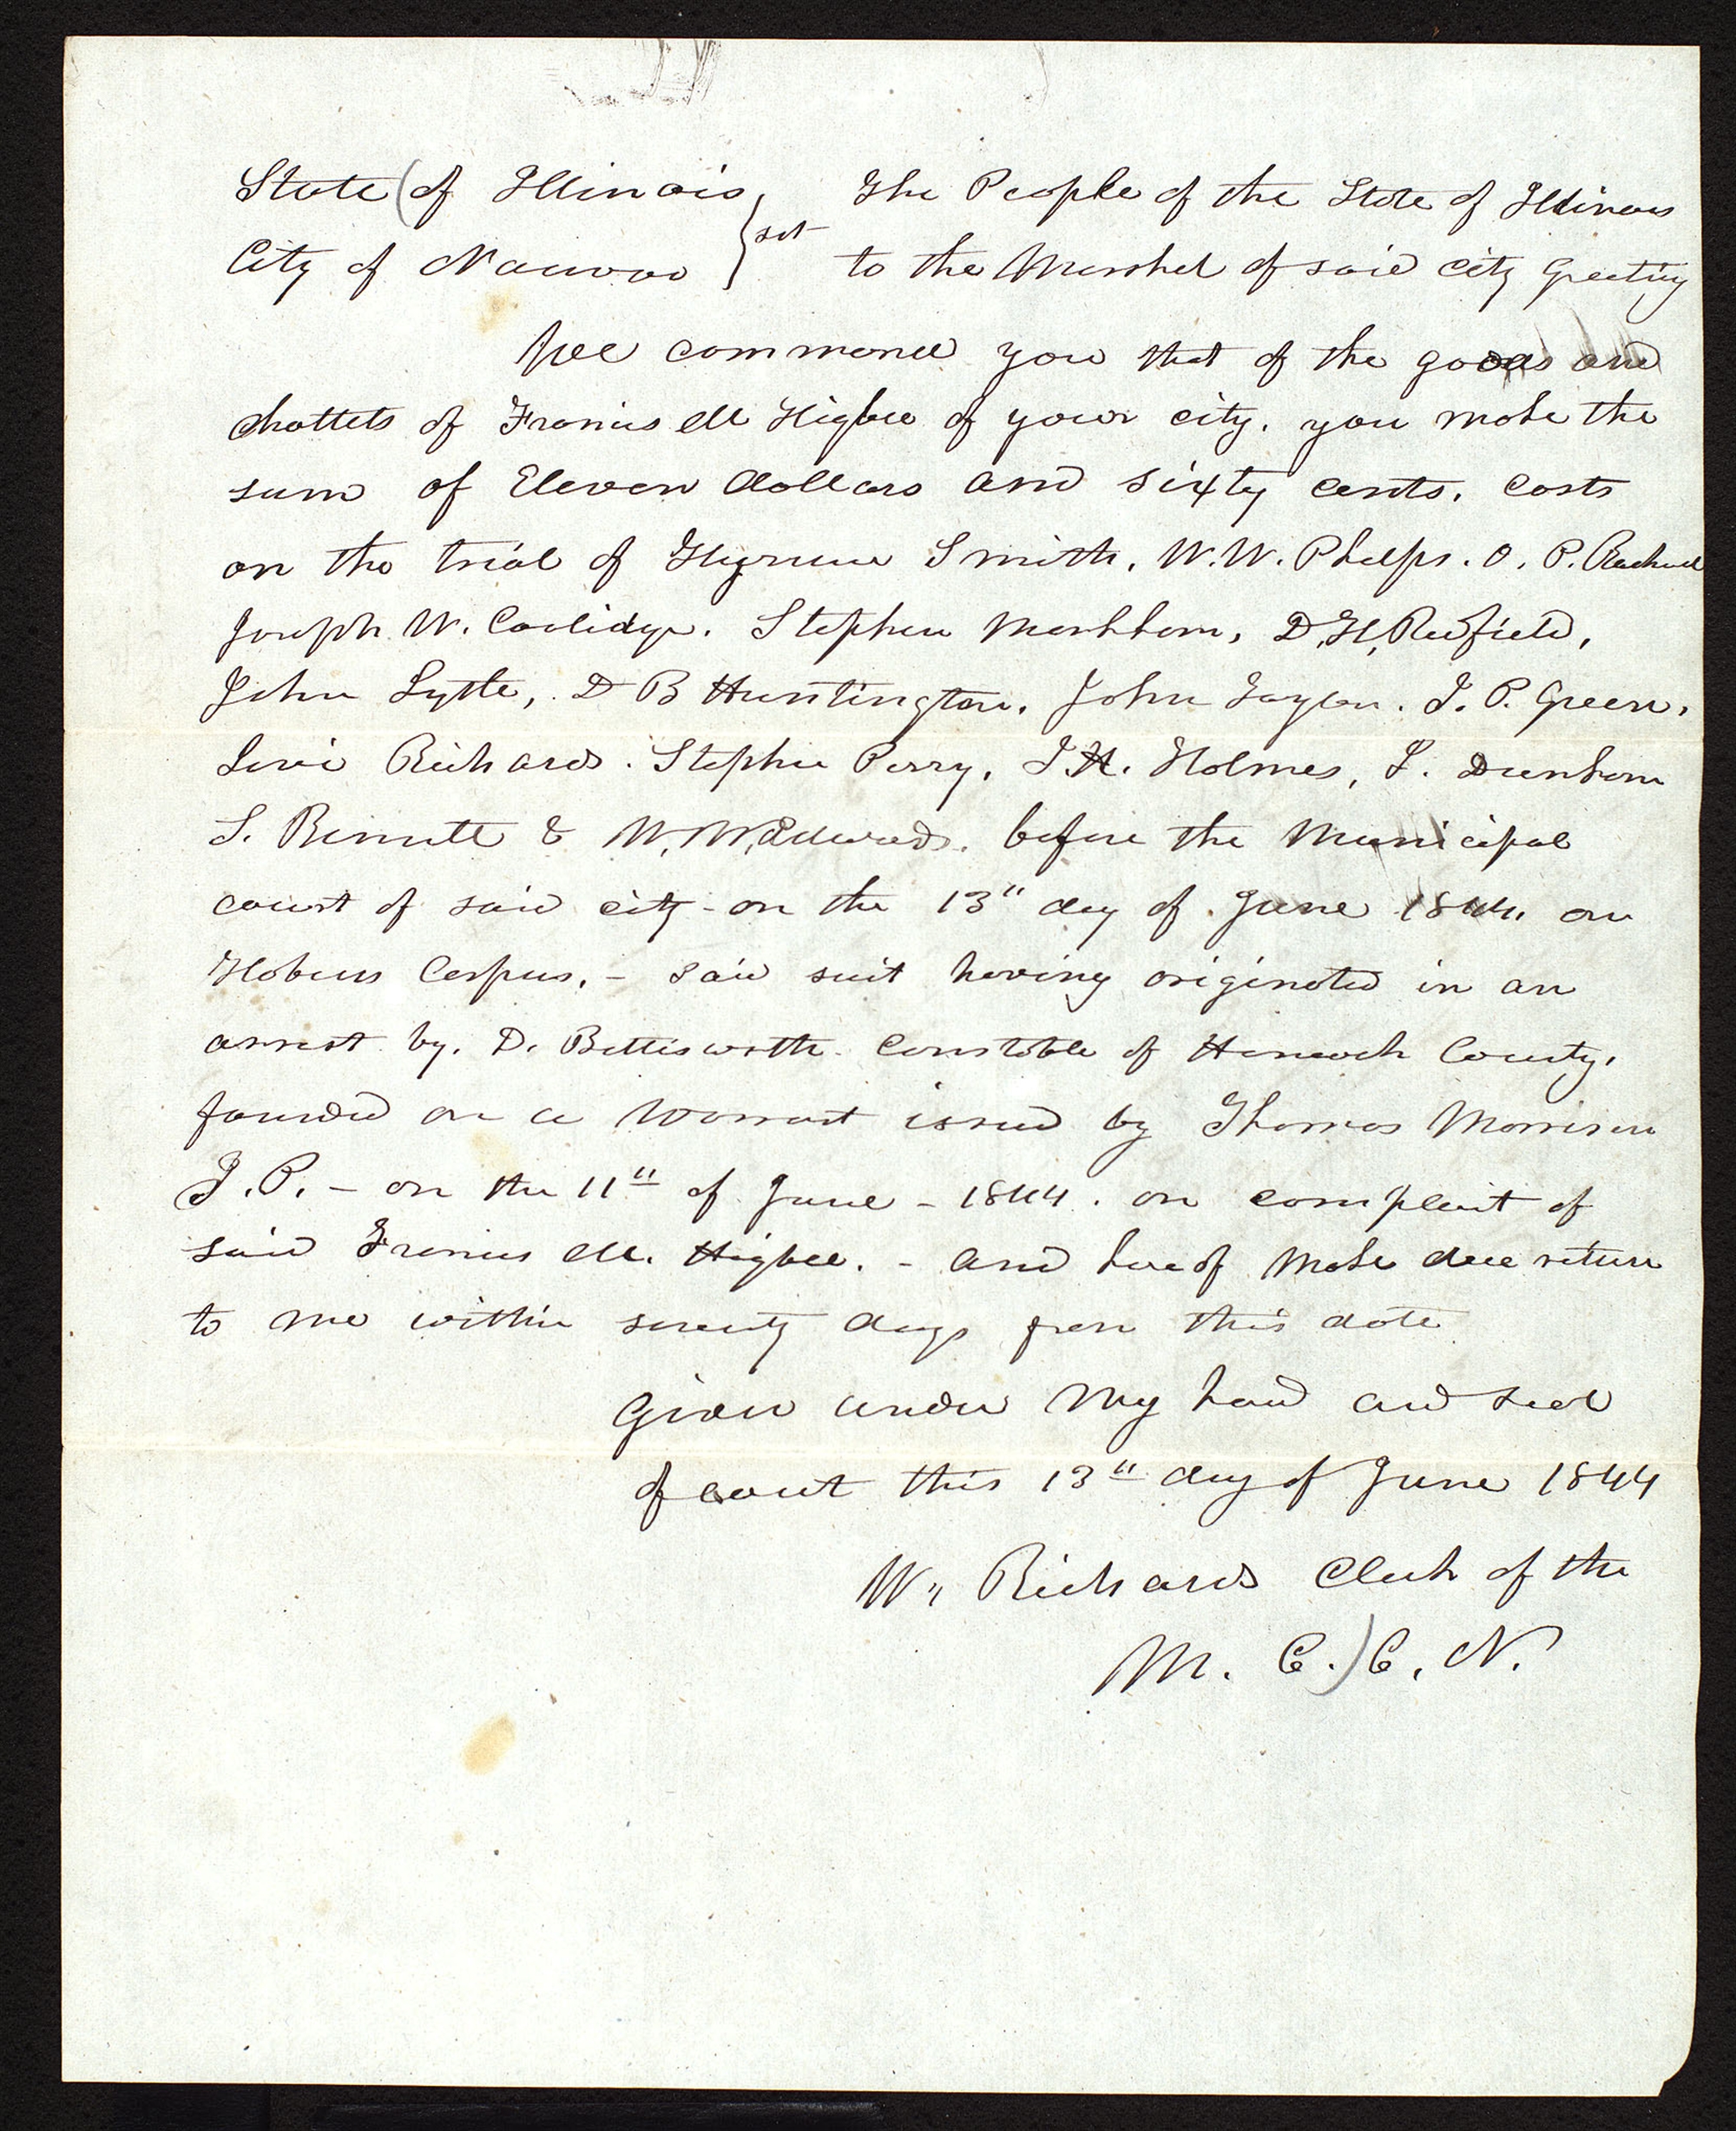 State of Illinois } sct The People of the State of Illinois
City of Nauvoo } to the Marshal of said city Greeting
We command you that of the goods and
chattels of Francis M Higbee of your city. you make the
sum of Eleven dollars and sixty cents. costs
on the trial of Hyrum Smith, W. W. Phelps. O. P. Rockwell
Joseph W. Coolidge. Stephen Markham, D. H, Redfield,
John Lytle, D B Huntington. John Taylor. J. P. Green.
Levi Richards. Stephen Perry, J H. Holmes, J. Dunham
S. Bennett & W. W, Edwards. before the Municipal
court of said city - on the 13" day of June 1844. on
Habeus Corpus. - said suit having originated in an
arrest by. D. Bettisworth. Constable of Hancock County.
founded on a warrant issued by Thomas Morrison
J. P. - on the 11" of June - 1844. on complaint of
said Francis M. Higbee. - and hereof make due return
to me within seventy days from this date
Given under my hand and seal
of court this 13" day of June 1844
W" Richards Clerk of the
M. C. C. N.